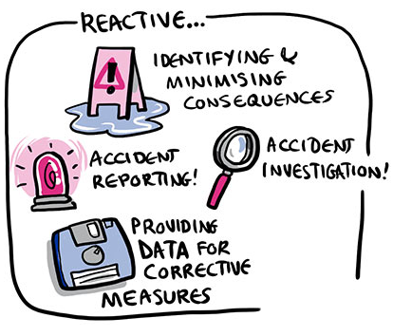 REACTIVE...
IDENTIFYING &
MINIMISING
CONSEQUENCES
!
ACCIDENT
REPORTING!
ACCIDENT
INVESTIGATION!
PROVIDING
DATA FOR
CORRECTIVE
MEASURES